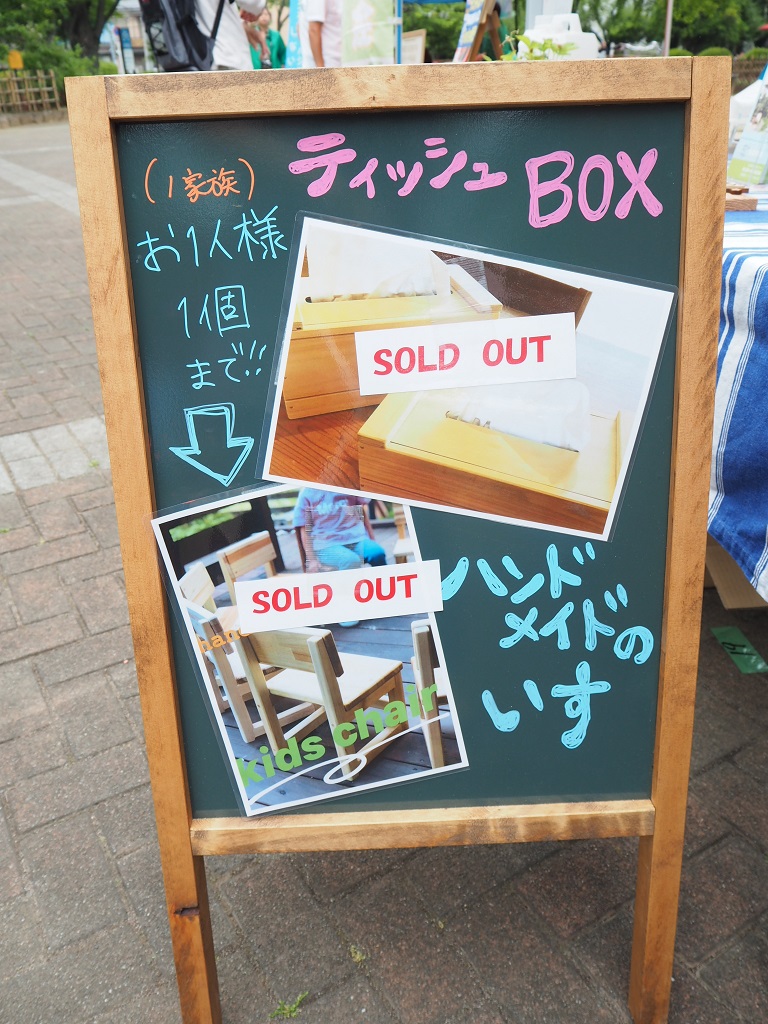 ティッシュ BOX
(1家族)
お1人様
1個
まで!!
SOLD OUT
SOLD OUT
kids chair
ハンド
メイドの
いす